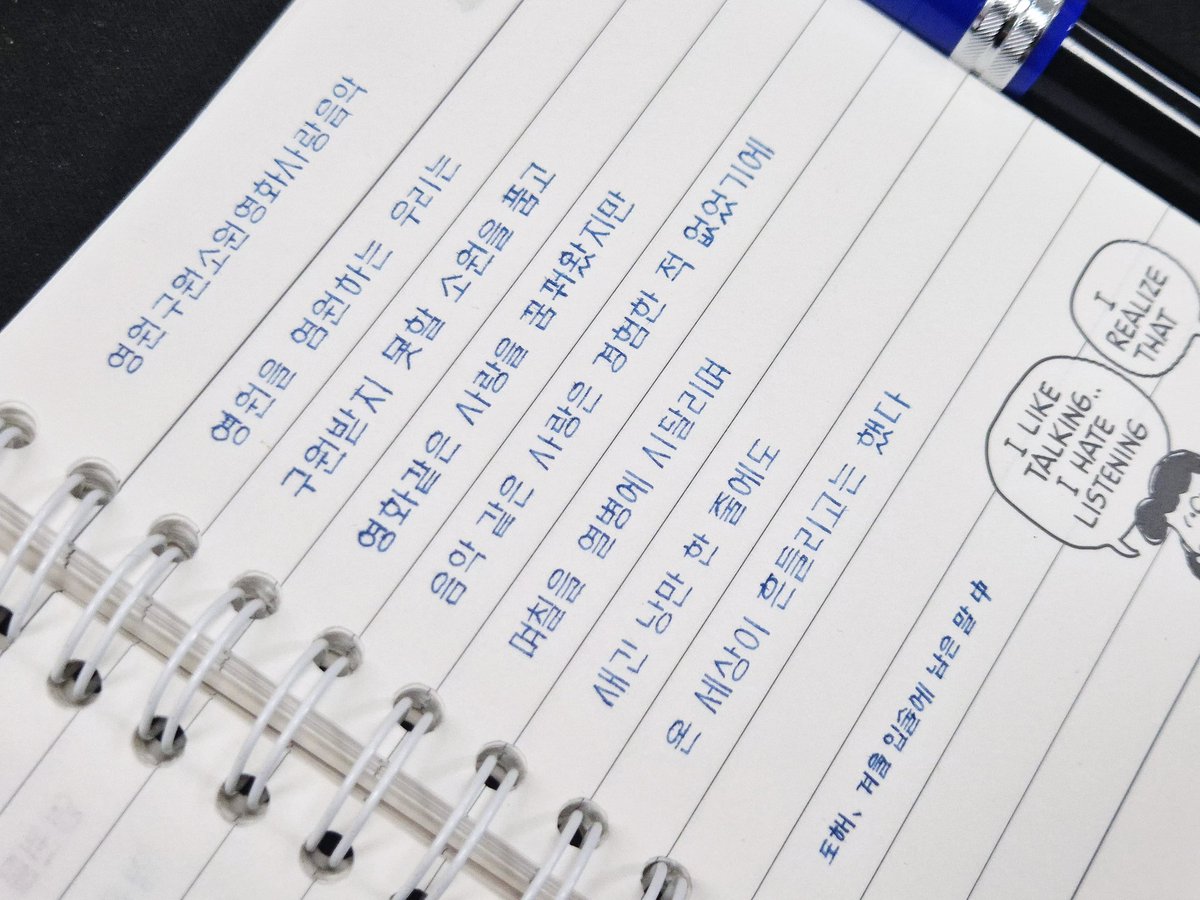 영원구원소원영화사랑음악
영원을 염원하는 우리는
구원받지 못할 소원을 품고
영화같은 사랑을 꿈꿔왔지만
음악 같은 사랑은 경험한 적 없었기에
며칠을 열병에 시달리며
새긴 낭만 한 줄에도
온 세상이 흔들리고는 했다
도해、겨울 입술에 남은 말 中
I
REALIZE
THAT
I LIKE
TALKING..
I HATE
LISTENING